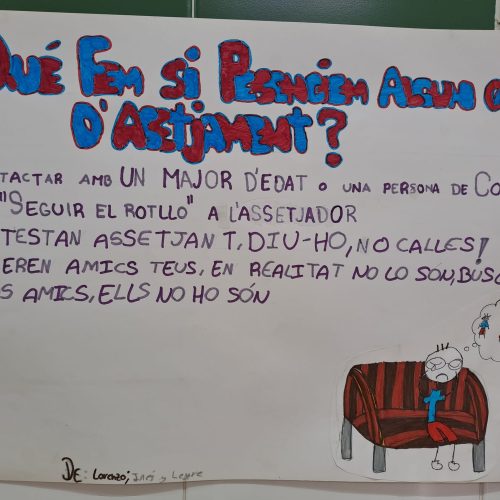 QUÉ FEM SI PESENCIEM ALGUN C
D'ASETJAMENT?
TACTAR AMB UN MAJOR D'EDAT O UNA PERSONA DE CO
"SEGUIR EL ROTLLO" A L'ASSETJADOR
TESTAN ASSETJANT, DIU-HO, NO CALLES!
EREN AMICS TEUS, EN REALITAT NO LO SÓN, BUSC
S AMICS, ELLS NO HO SÓN
DE: Lorenzo, Inés y Leyre